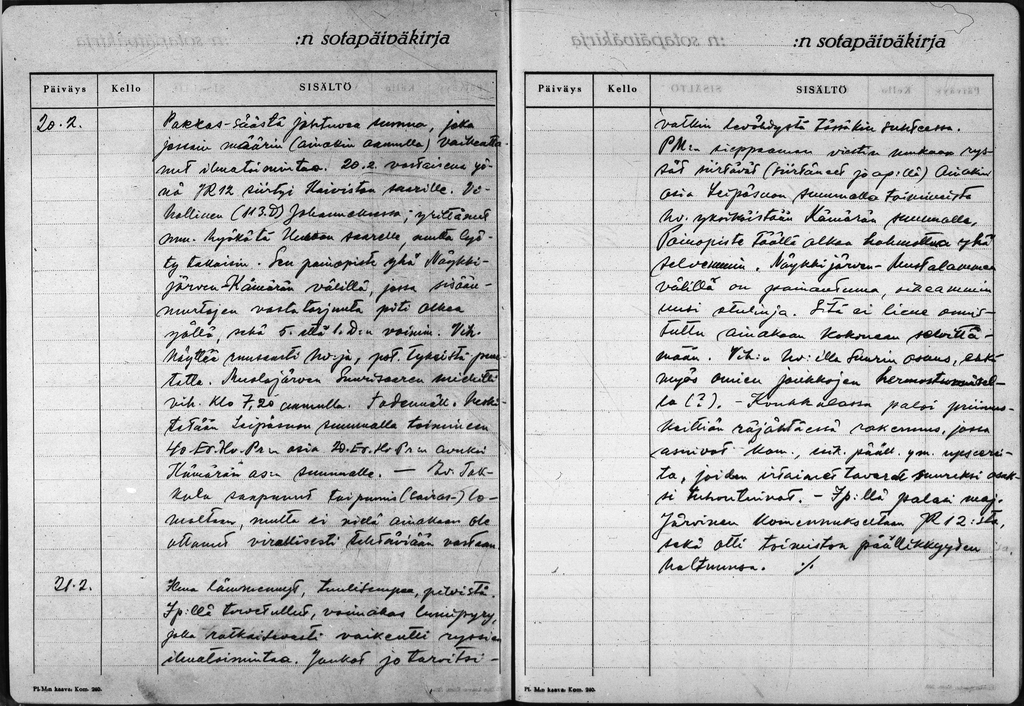 :n sotapäiväkirja
Päiväys Kello SISÄLTÖ
20.2. Pakkas-säästä johtuvaa sumua, joka
jossain määrin (ainakin aamulla) vaikeutta-
nut ilmatoimintaa. 20.2 vastaisena yö-
nä JR12 siirtyi Koiviston saarille. Vi-
hollinen (113.D) Johanneksessa; yrittänyt
mm. hyökätä saarelle, mutta lyö-
ty takaisin. Sen painopiste yhä Näykki-
järven-Kämärän välillä, jossa sisään-
murtojen vastatorjunta piti alkaa
yöllä, sekä 5. että 1.D:n voimin. Vih.
näyttää runsaasti hv:ja, pst. tykeistä puu-
tetta. Muolajärven Suurisaaren miehitti
vih. klo 7,20 aamulla. Todennäk. keski-
tetään Leipäsuon suunnalla toimineen
40.Ev.Hv.Pr:n osia 20.Ev.Hv.Pr:n avuksi
Kämärän as:n suunnalle. — Ev. Tak-
kula saapunut toipumis (sairas-) lo-
maltaan, mutta ei vielä ainakaan ole
ottanut virallisesti tehtäviään vastaan.
21.2. Ilma lämmennyt, tuulisempaa, pilvistä.
Ip:llä tuvetullut, voimakas lumipyry,
joka ratkaisevasti vaikeutti ryssien
ilmatoimintaa. Joukot jo tarvitsi-
Pl. M:n kaava: Kom. 260.
:n sotapäiväkirja
Päiväys Kello SISÄLTÖ
vatkin levähdystä tässäkin suhteessa.
PM:n sieppaaman viestin mukaan rys-
sät siirtävät (siirtäneet jo ap:llä) ainakin
osia Leipäsuon suunnalla toimineista
hv. yksiköistään Kämärän suunnalle,
Painopiste täällä alkaa hahmottua yhä
selvemmin. Näykkijärven-Mustalammen
välillä on painautuma, oikeammin
uusi etulinja. Sitä ei liene onnis-
tuttu ainakaan kokonaan selvittä-
mään. Vih:n hv:illa suurin osuus, ehkä
myös omien joukkojen hermostuneisuudel-
la (?). — paloi priimus-
keittiön räjähtäessä rakennus, jossa
asuivat kom., päällik. ym. upseeri-
ta, joiden irtaimet tavarat suureksi osak-
si tuhoutuivat. — Ip:llä palasi maj.
Järvinen komennukseltaan JR12:sta,
sekä otti toimiston päällikkyyden
haltuunsa. ∕.
Pl. M:n kaava: Kom. 260.